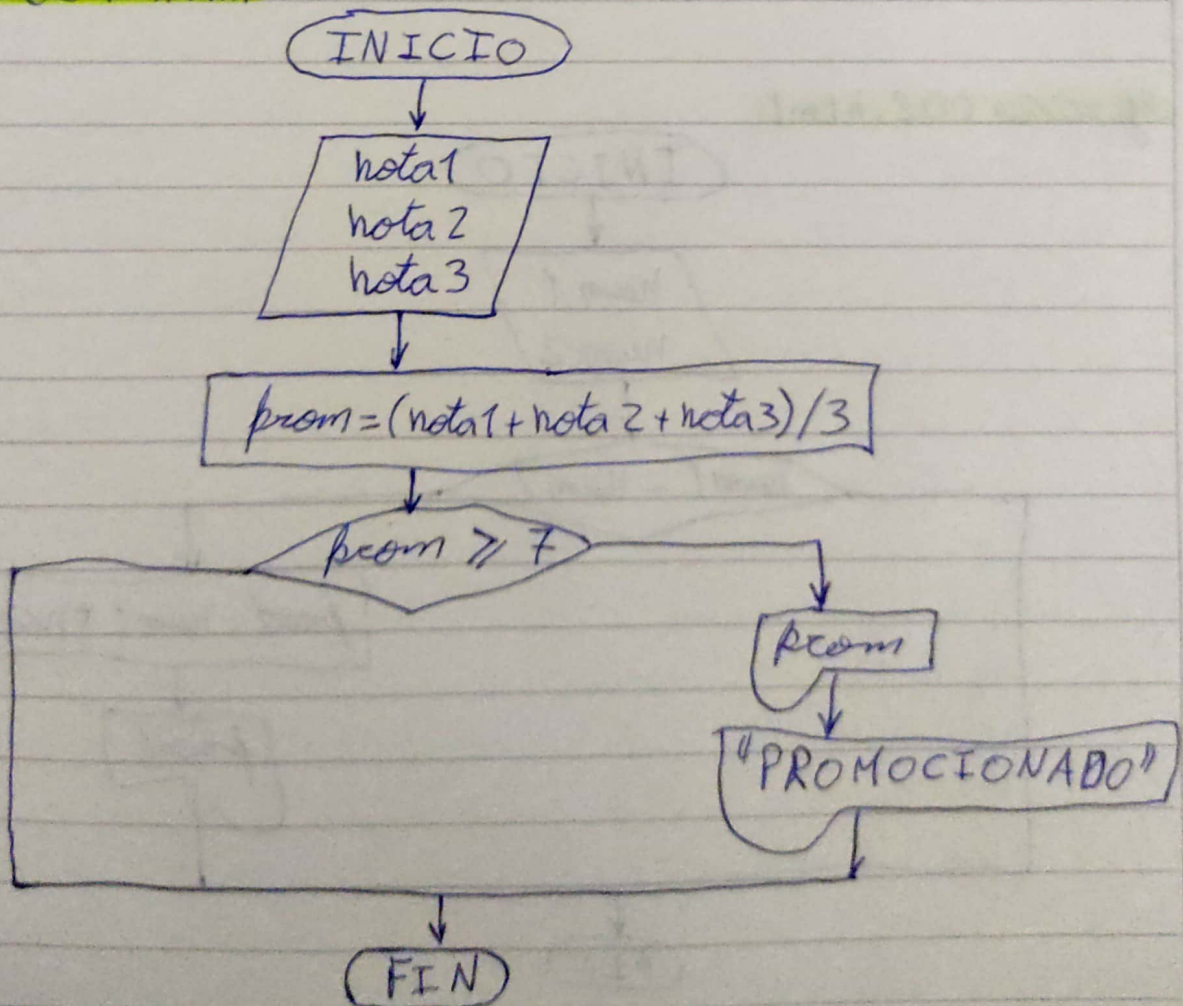 INICIO
nota1
nota2
nota3
prom=(nota1+nota2+nota3)/3
prom ≥ 7
prom
"PROMOCIONADO"
FIN